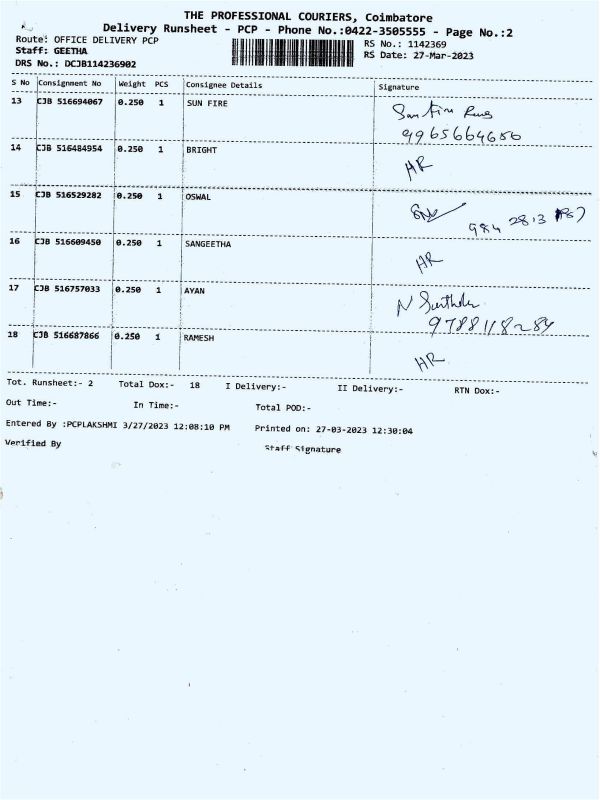 THE PROFESSIONAL COURIERS, Coimbatore
Delivery Runsheet - PCP - Phone No.:0422-3505555 - Page No.:2
Route: OFFICE DELIVERY PCP
RS No.: 1142369
Staff: GEETHA
RS Date: 27-Mar-2023
DRS No.: DCJB114236902
S No Consignment No Weight PCS Consignee Details Signature
13 CJB 516694067 0.250 1 SUN FIRE
9965664686
14 CJB 516484954 0.250 1 BRIGHT HR
15 CJB 516529282 0.250 1 OSWAL
984 2813
16 CJB 516609450 0.250 1 SANGEETHA HR
17 CJB 516757033 0.250 1 AYAN N
9788118284
18 CJB 516687866 0.250 1 RAMESH HR
Tot. Runsheet:- 2 Total Dox:- 18 I Delivery:- II Delivery:- RTN Dox:-
Out Time:- In Time:- Total POD:-
Entered By :PCPLAKSHMI 3/27/2023 12:08:10 PM Printed on: 27-03-2023 12:30:04
Verified By Staff Signature